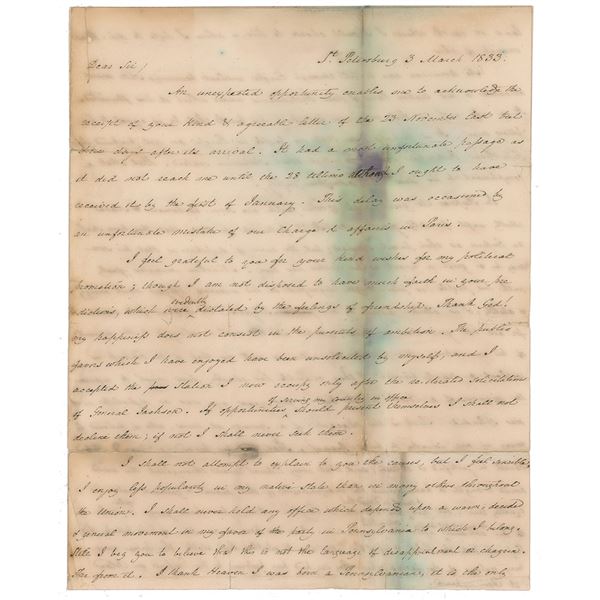 St. Petersburg 3 March 1833.
Dear Sir/
An unexpected opportunity enables me to acknowledge the
receipt of your kind & agreeable letter of the 23 November last but
three days after its arrival. It had a most unfortunate passage as
it did not reach me until the 28 ultimo although I ought to have
received it by the first of January. This delay was occasioned by
an unfortunate mistake of our Chargé d'affaires in Paris.
I feel grateful to you for your kind wishes for my political
promotion; though I am not disposed to have much faith in your pre
dictions, which were evidently dictated by the feelings of friendship. Thank God!
my happiness does not consist in the pursuits of ambition. The public
favors which I have enjoyed have been unsolicited by myself; and I
accepted the station I now occupy only after the reiterated solicitations
of General Jackson. If opportunities of serving my country in office should present themselves I shall not
decline them; if not I shall never seek them.
I shall not attempt to explain to you the causes, but I feel sensible,
I enjoy less popularity in my native State than in many others throughout
the Union. I shall never hold any office which depends upon a warm, decided
& general movement in my favor of the party in Pennsylvania to which I belong.
Still I beg you to believe that this is not the language of disappointment or chagrin.
Far from it. I thank Heaven I was born a Pennsylvanian, it is the only